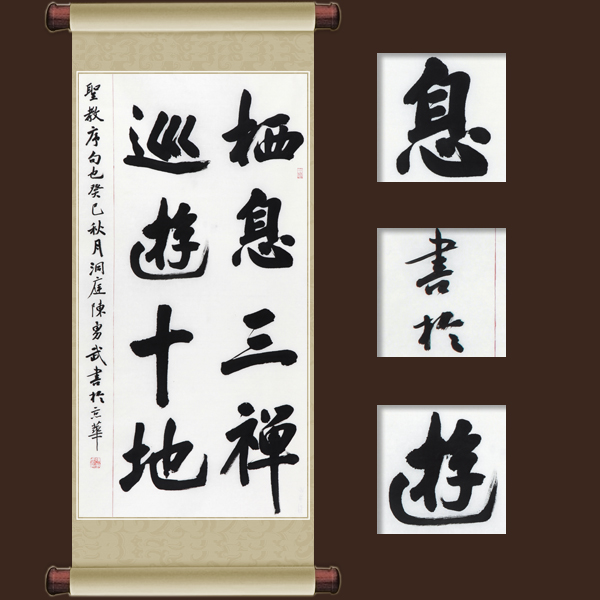 栖息三禅
巡遊十地
聖教序句也癸巳秋月洞庭陳勇武書於京華
息
書於
遊